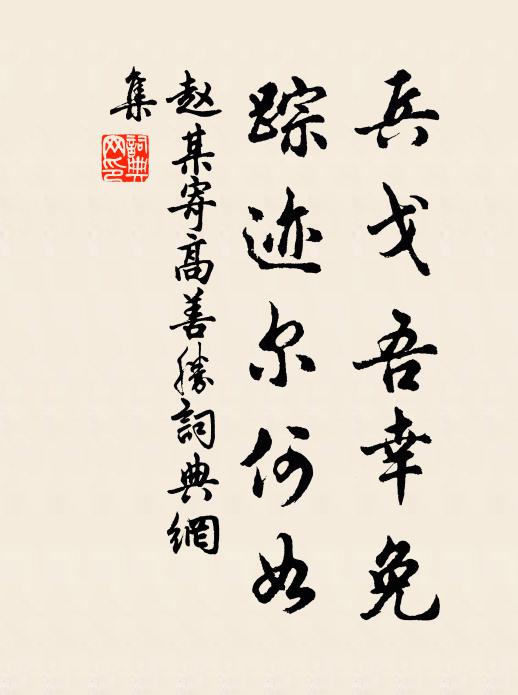 兵戈吾幸免
踪迹尔何如
赵某寄高善勝詞典網
集
詞典
网印